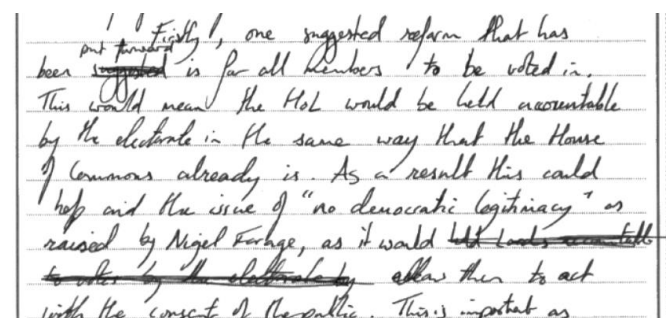 Firstly, one suggested reform that has
put forward
been suggested is for all members to be voted in.
This would mean the HoL would be held accountable
by the electorate in the same way that the House
of Commons already is. As a result this could
help aid the issue of "no democratic legitimacy" as
raised by Nigel Farage, as it would held Lords accountable
to votes by the electorate by allow them to act
with the consent of the public. This is important as